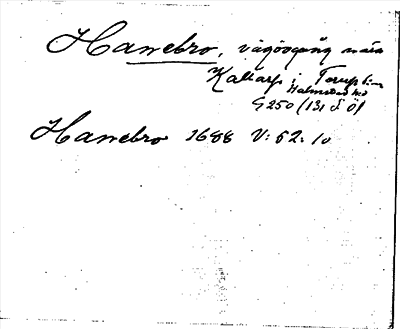 Hanebro, vägövergång nära
Kallarp i Torup s:n
Halmstad hd
G250 (131 S Ö)
Hanebro 1688 V: 52: 10